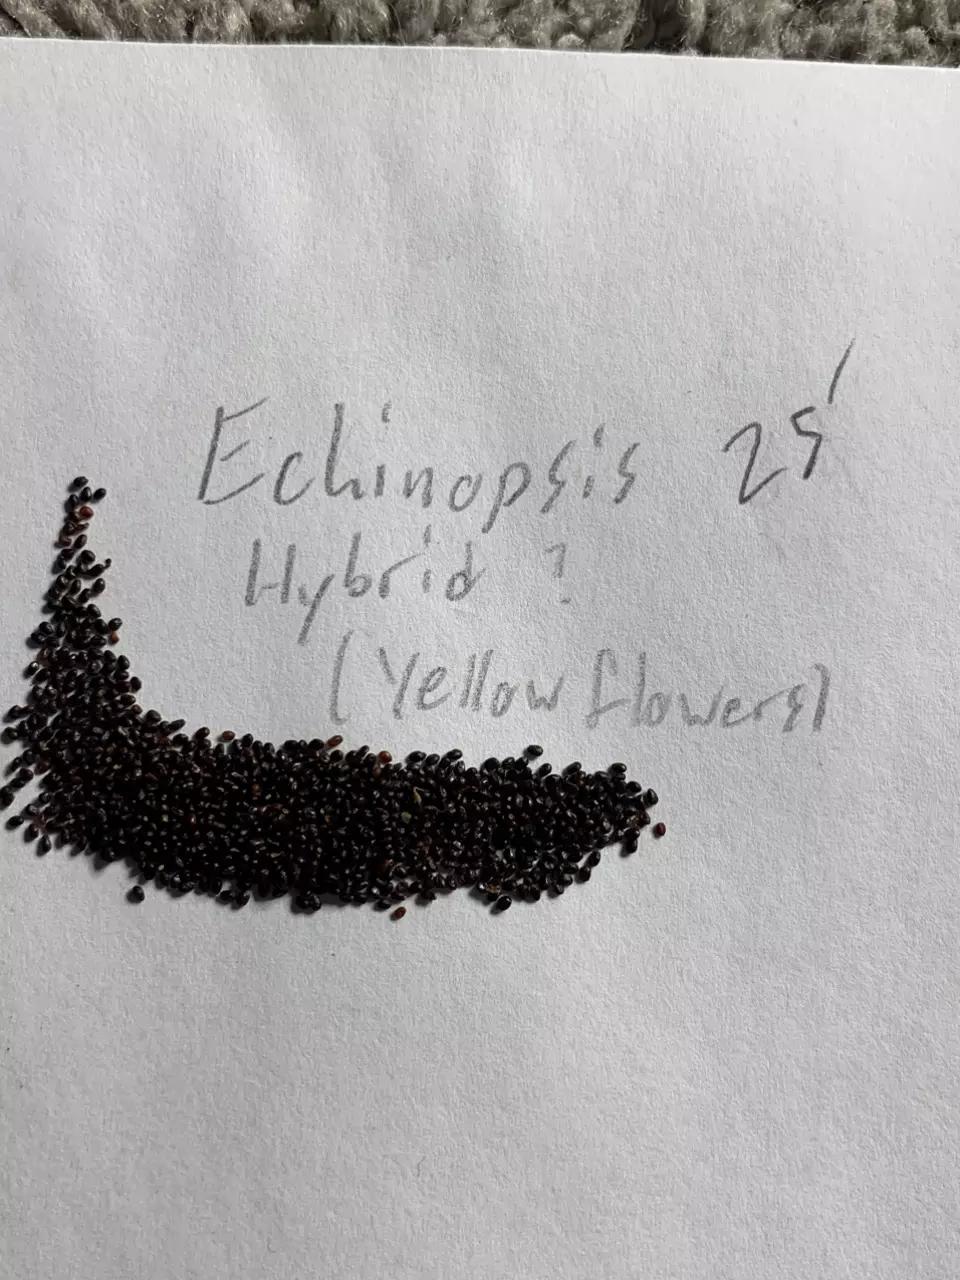 Echinopsis 25'
Hybrid ?
(Yellow flowers)